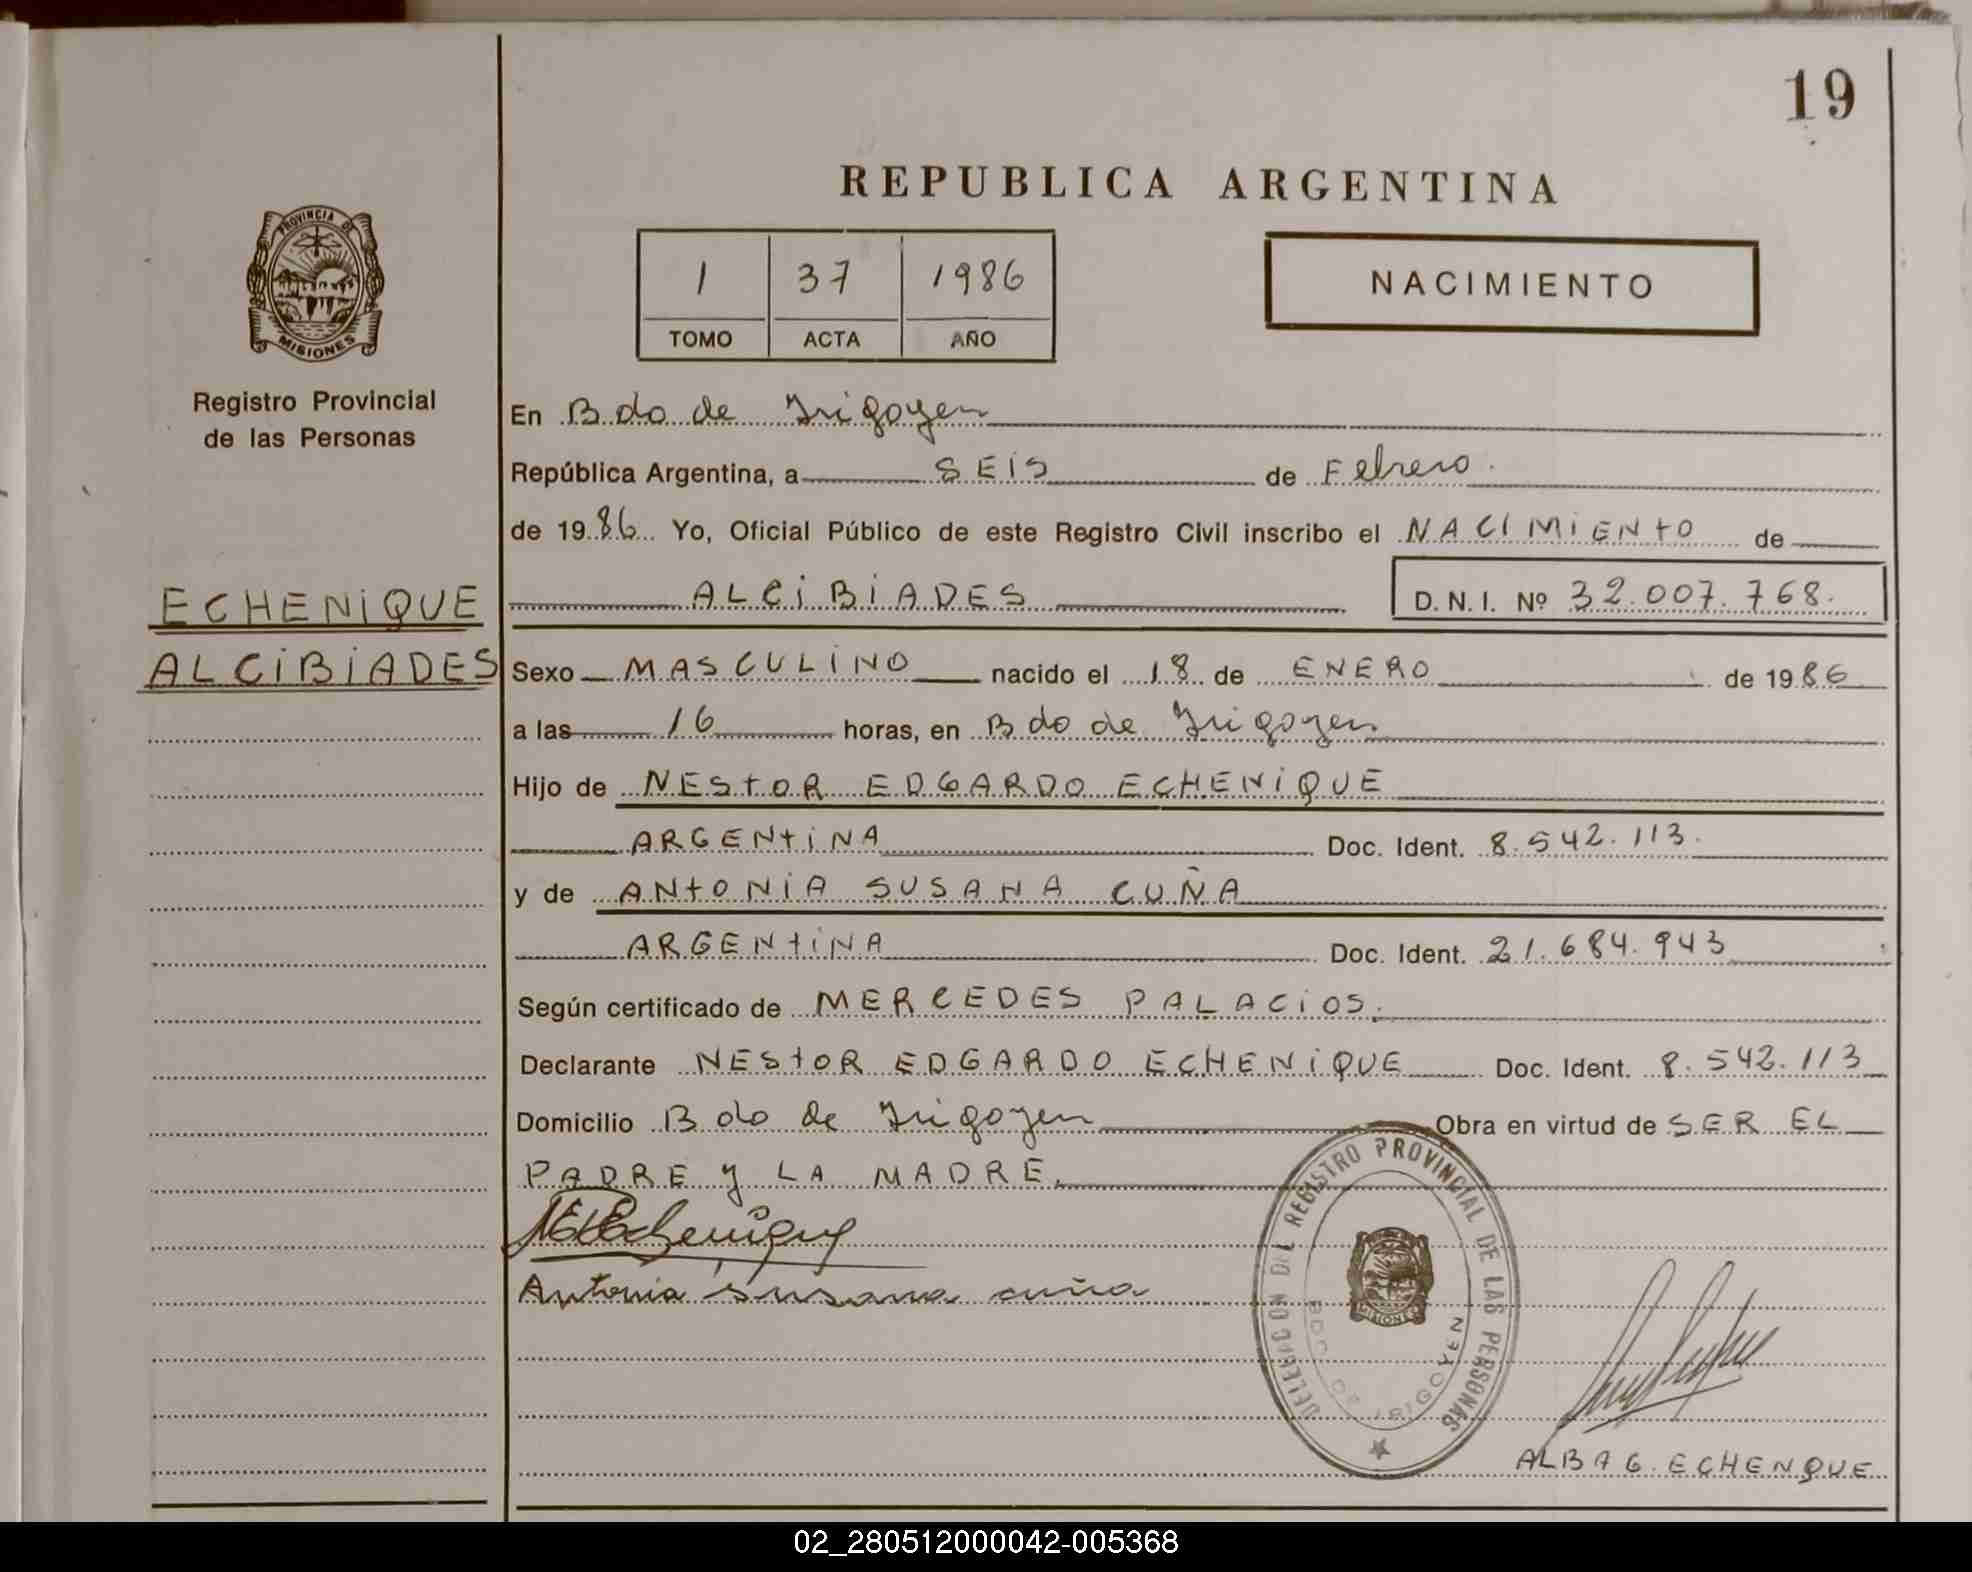 19
REPUBLICA ARGENTINA
PROVINCIA DE
MISIONES
1 37 1986
TOMO ACTA AÑO
NACIMIENTO
Registro Provincial
de las Personas
ECHENIQUE
ALCIBIADES
En Bdo de Irigoyen
República Argentina, a SEIS de Febrero.
de 1986 Yo, Oficial Público de este Registro Civil inscribo el NACIMIENTO de
ALCIBIADES D.N.I. Nº 32.007.768.
Sexo MASCULINO nacido el 18 de ENERO de 1986
a las 16 horas, en Bdo de Irigoyen
Hijo de NESTOR EDGARDO ECHENIQUE
ARGENTINA Doc. Ident. 8.542.113.
y de ANTONIA SUSANA CUÑA
ARGENTINA Doc. Ident. 21.684.943
Según certificado de MERCEDES PALACIOS.
Declarante NESTOR EDGARDO ECHENIQUE Doc. Ident. 8.542.113
Domicilio Bdo de Irigoyen Obra en virtud de SER EL
PADRE y LA MADRE.
NEEchenique
Antonia Susana cuña
DELEGACION DEL REGISTRO PROVINCIAL DE LAS PERSONAS
MISIONES
BDO DE IRIGOYEN
ALBA G. ECHENQUE
02_280512000042-005368